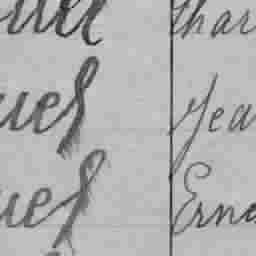 uel Char
uel Jea
uel Erne